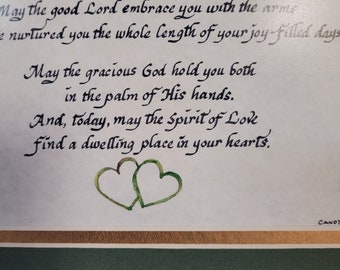 May the good Lord embrace you with the arms
nurtured you the whole length of your joy-filled days
May the gracious God hold you both
in the palm of His hands.
And, today, may the Spirit of Love
find a dwelling place in your hearts.